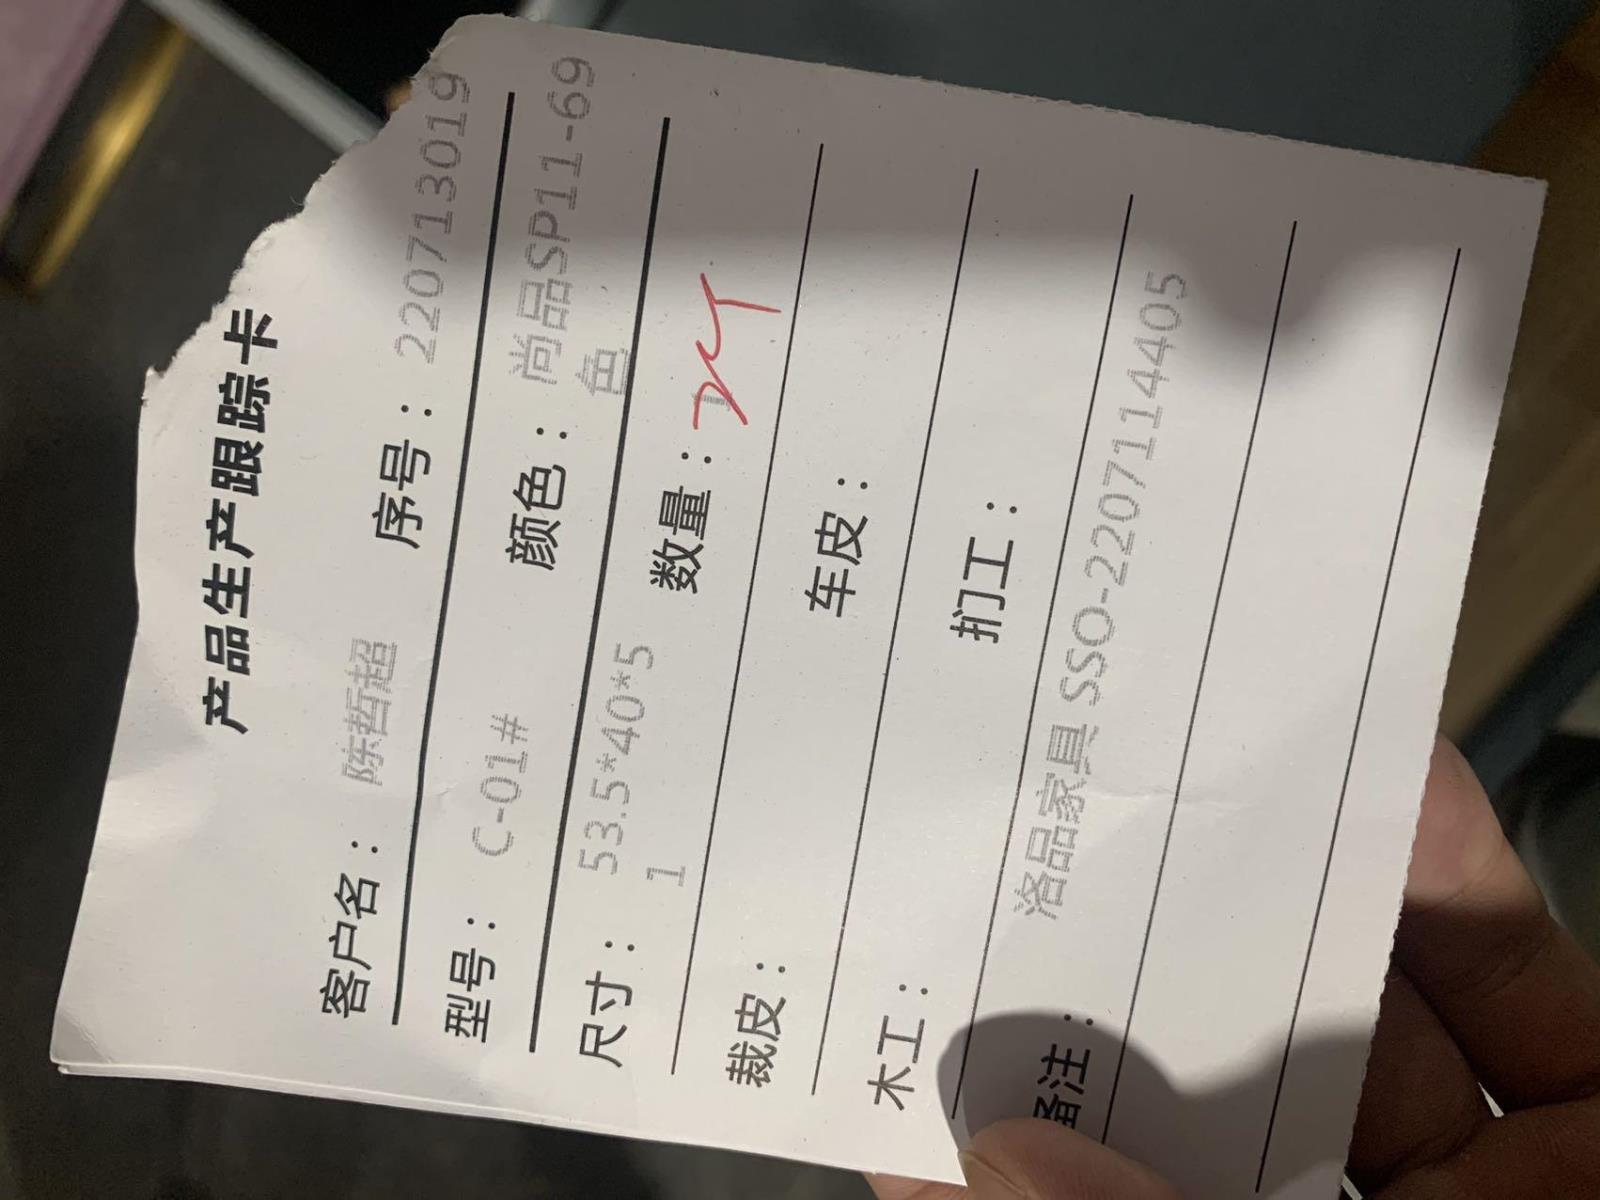 产品生产跟踪卡
客户名： 陈哲超 序号：220713019
型号： C-01# 颜色： 尚品SP11-69
色
尺寸： 53.5*40*5 数量：
1
裁皮： 车皮：
木工： 扪工：
备注： 洛品家具 SSO-2207114405